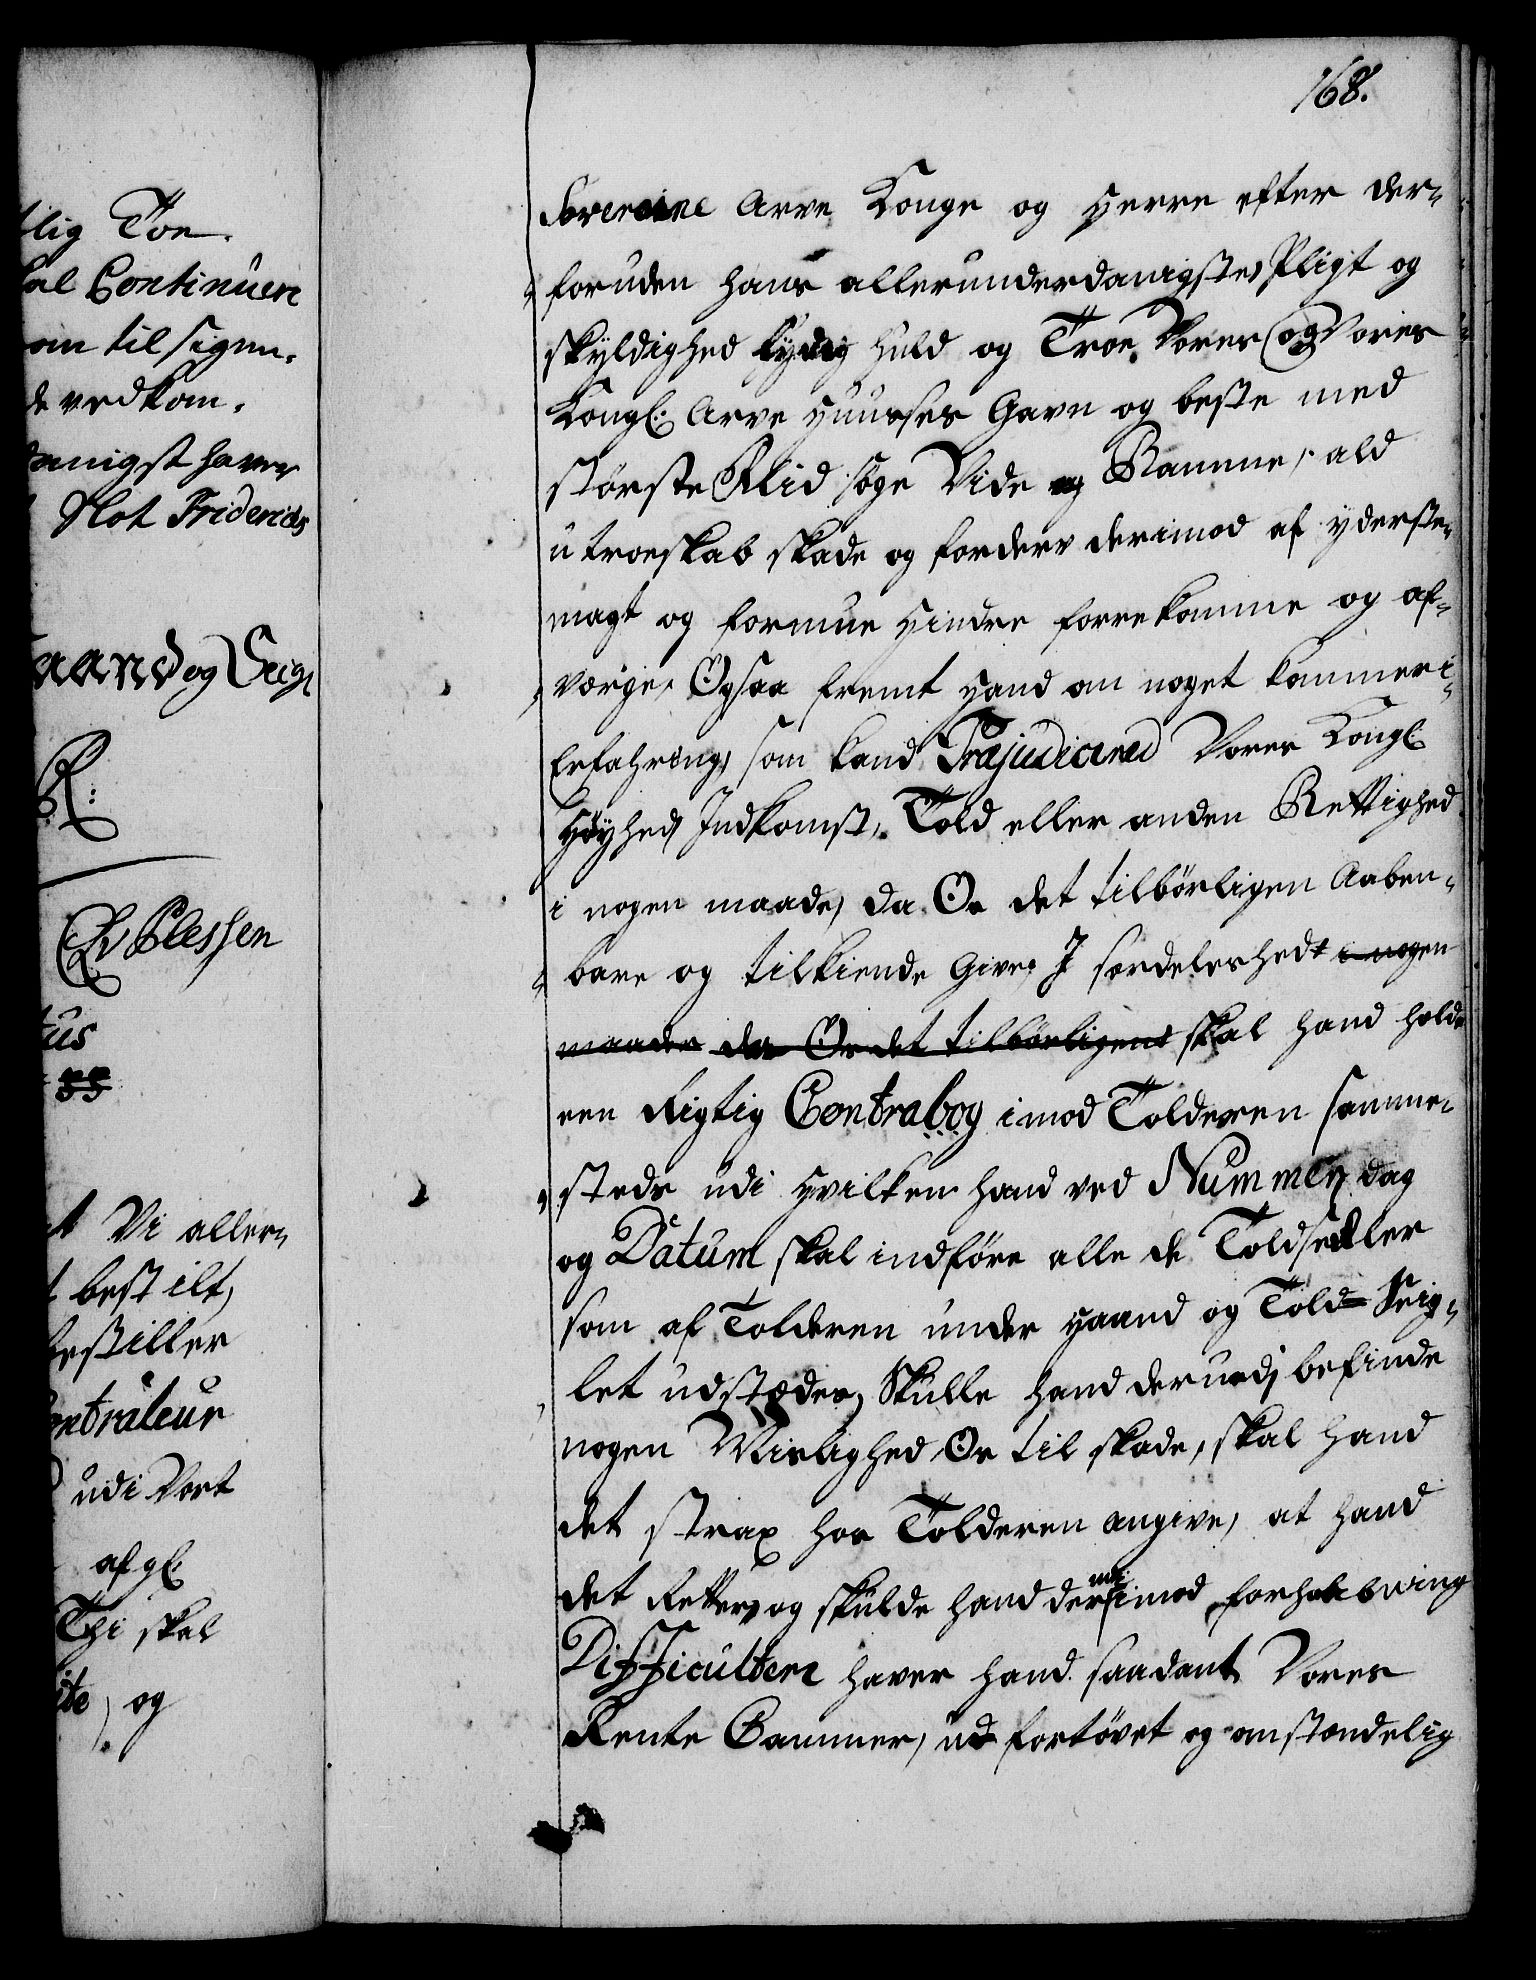 168.
lig Toe
al Continuere
om tilsigen,
de vedkom,
danigst haver
Slot Friderichs
Haand og Seigl
R:
CAv Plessen
tus
Vi aller„
bestilt,
bestiller
Contraleur
udi Vort
af gl:
Thi skal
og
Sovereine Arve Konge og Herre efter der„
foruden hans allerunderdanigste Pligt og
skyldighed huld og Troe, Vores og Vores
Kongl: Arve Huusses Gavn og beste med
største Flid søge Vide og Ramme, ald
utroeskab skade og forderv derimod af yderste
magt og formue Hindre forrekomme og af„
værge, Ogsaa fremt Hand om noget kommer i
Erfahring, som kand Præjudicered Vores Kongl:
Høyhed, Indkomst, Told eller anden Rettighed
i nogen maade, da Os det tilbørligen Aaben„
bare og tilkiende Give, I særdeleshedt i nogen
maade da Os det tilbørligent skal hand holde
een Rigtig Contrabog imod Tolderen samme„
steds udi Hvilken hand ved Nummer, dag
og Datum skal indføre alle de Toldsedler
som af Tolderen under Haand og Told Seig„
let udstædes, Skulle hand derudj befinde
nogen Mislighed Os til skade, skal hand
det strax hos Tolderen angive, at hand
det Retter, og skulde hand der udi imod forhaabning
Difficultere haver hand saadant Vores
Rente Cammer, ud fortøvet og omstændelig